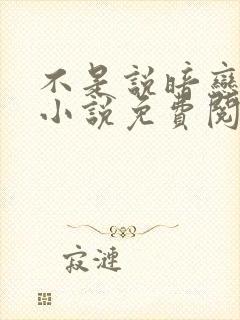 不是說暗戀
小說免費閱
寂漣